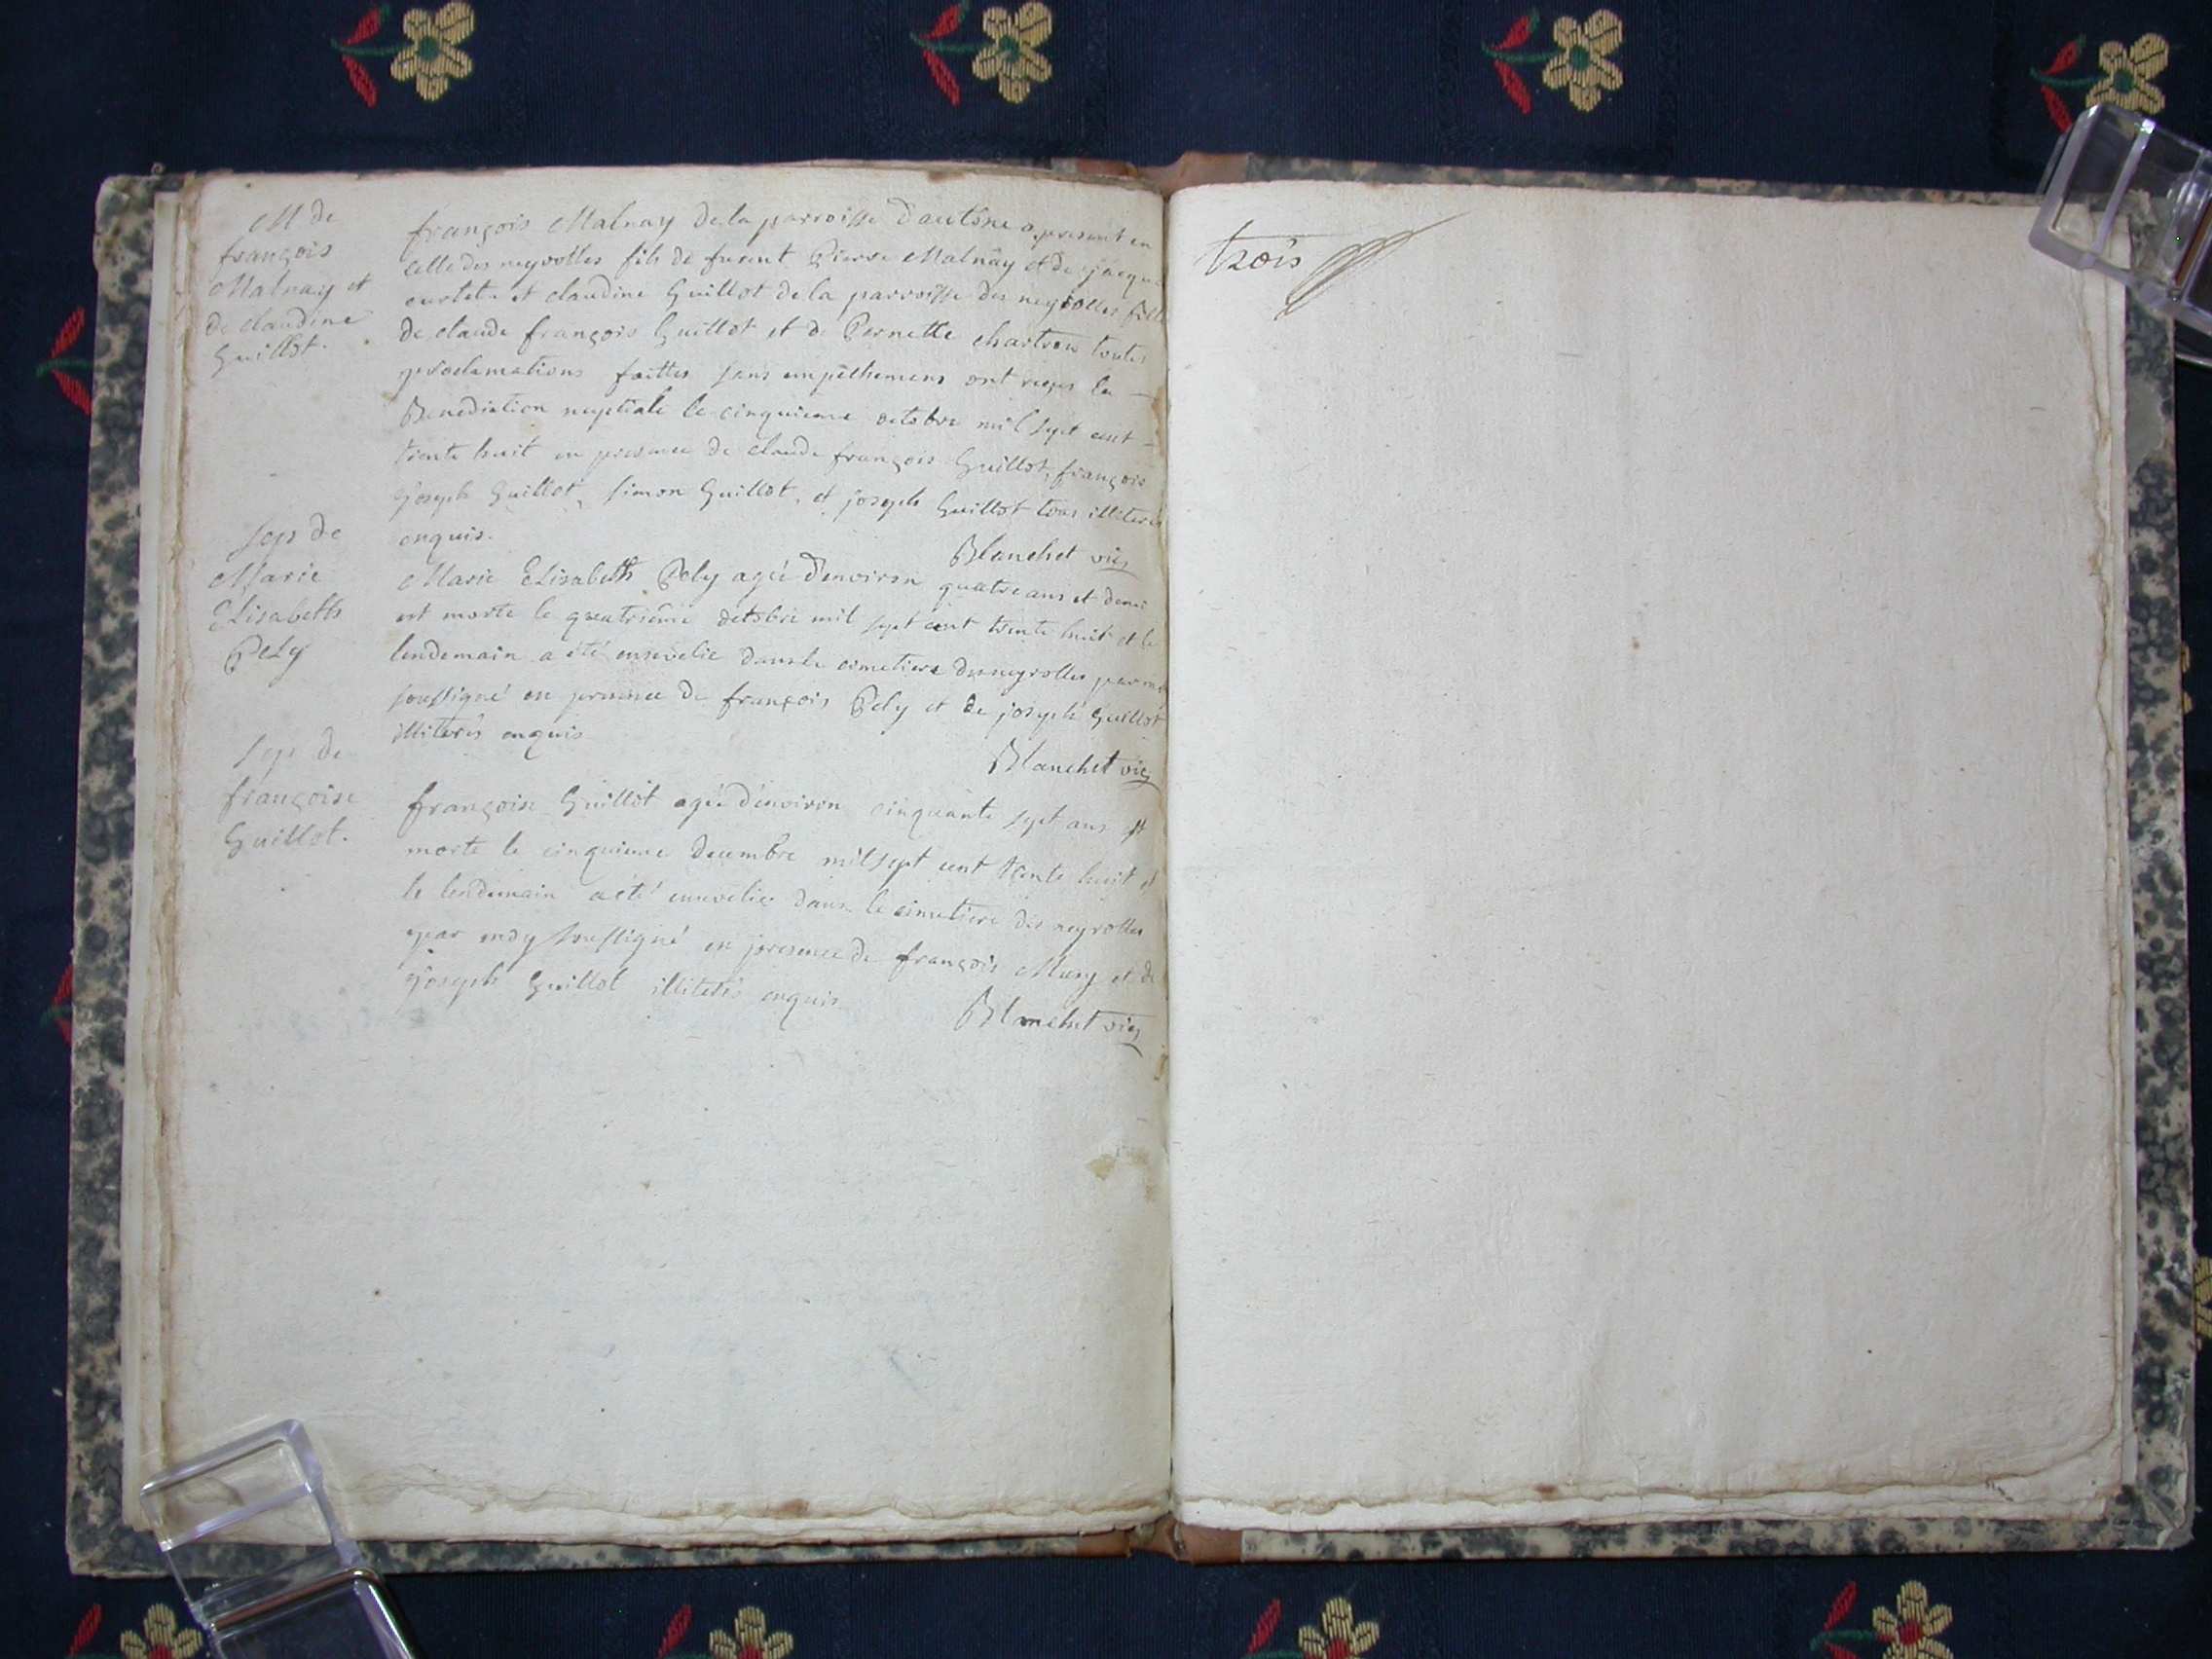 M de
françois
Malnay et
de claudine
Guillot.
françois Malnay de la parroisse d'autone a present en
celle des neyrolles fils de furent Pierre Malnay et de jacqu
et claudine Guillot de la parroisse des neyrolles fille
de claude françois Guillot et de Pernette chartron toutes
proclamations faittes sans empêthemens ont reçus la
Benediction nuptiale le cinquieme octobre mil sept cent
trente huit en presence de claude françois Guillot, françois
joseph Guillot, simon Guillot, et joseph Guillot tous illiterés
enquis.
Blanchet vic
Sep de
Marie
Elisabeth
Pely
Marie Elisabeth Pely agée d'environ quatre ans et demi
est morte le quatrieme octobre mil sept cent trente huit et le
lendemain a été ensevelie dans le cimetiere des neyrolles par moy
soussigné en presence de françois Pely et de joseph Guillot
illiterés enquis
Blanchet vic
Sep de
françoise
Guillot.
françoise Guillot agée d'environ cinquante sept ans est
morte le cinquieme decembre mil sept cent trente huit et
le lendemain a été ensevelie dans le cimetiere des neyrolles
par moy soussigné en presence de françois Musy et de
joseph Guillot illiterés enquis
Blanchet vic
trois